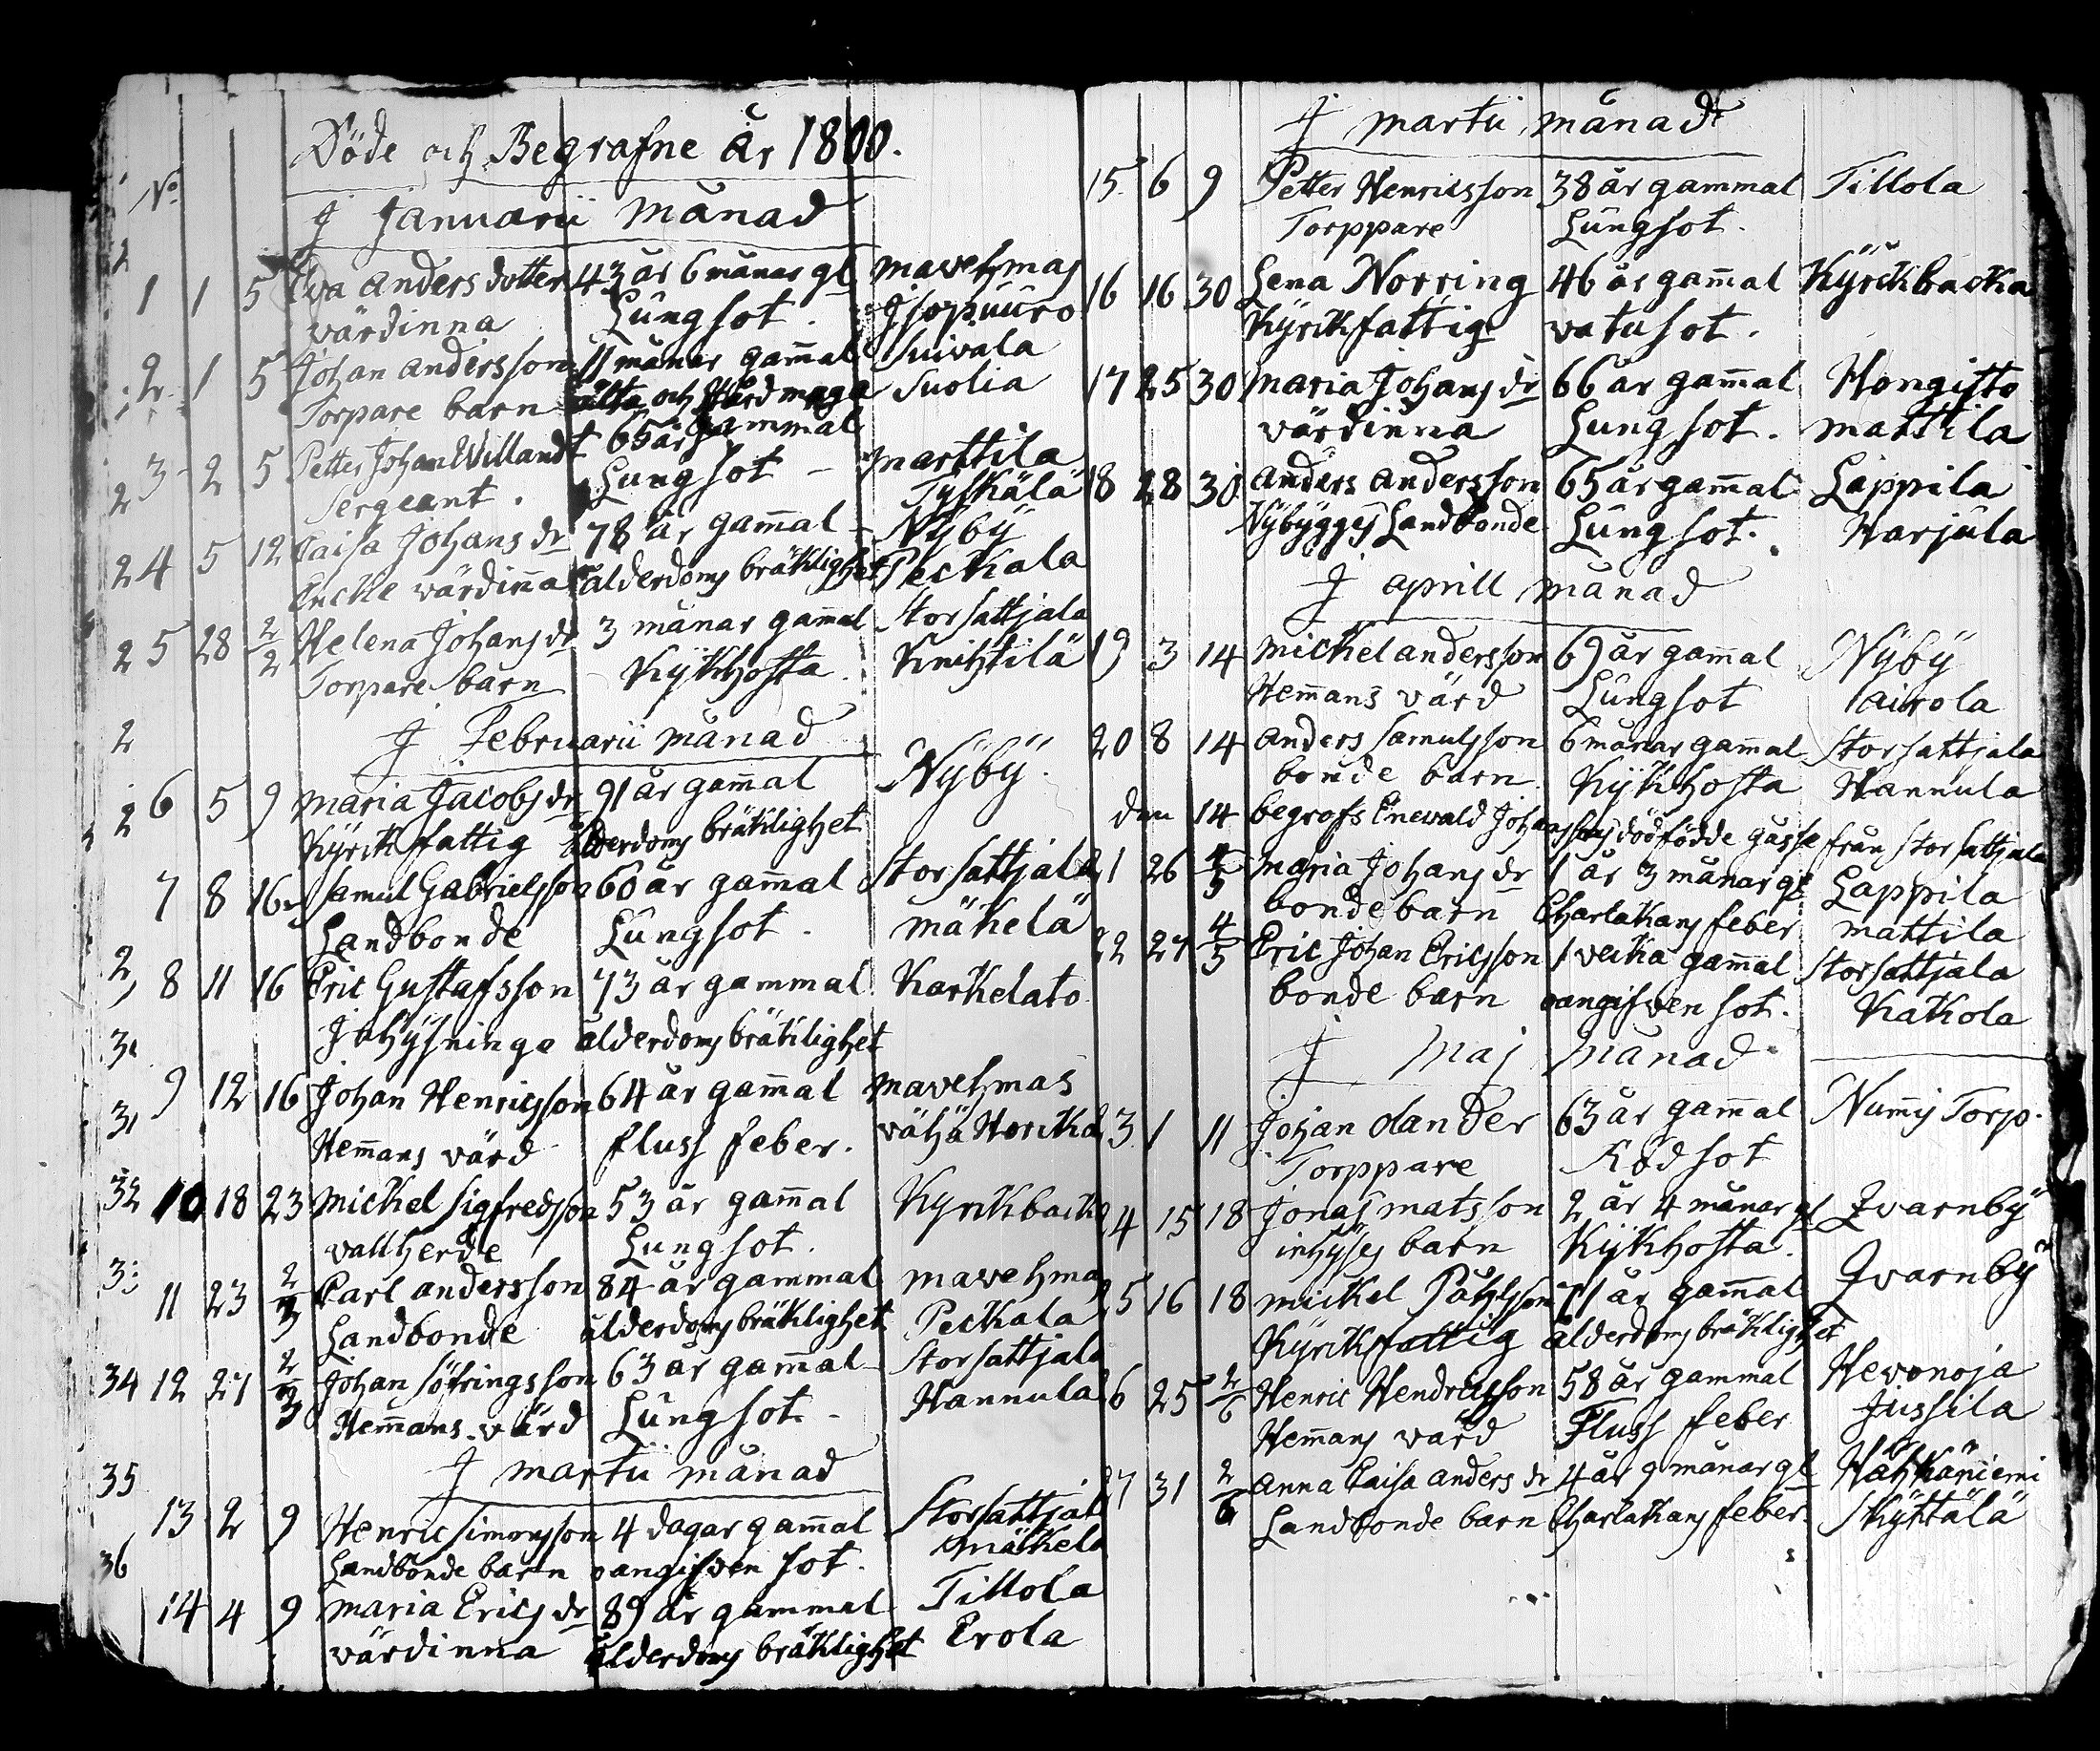 Döde och Begrafne År 1800.
No
J Januarii månad
1 1 5 Eva Anders dotter 43 år 6 månar gl mavehmas
värdinna Lungsot. Jsopuuro
2 1 5 Johan andersson 11 månar gammal Suivala
Torpare barn älta och Hård maga Suolia
3 2 5 Petter Johan Willandt 65 år gammal marttila
Sergeant. Lungsot Tyskälä
4 5 12 Caisa Johans dr 78 år gammal Nÿbÿ
Encke värdinna ålderdoms bräklighet Peckala
5 28 2/2 Helena Johans dr 3 månar gammal Storsattjala
Torpare barn Kÿkhosta Knihtilä
J Februarii månad
6 5 9 Maria Jacobs dr 91 år gammal Nÿbÿ
Kÿrck fattig ålderdoms bräklighet
7 8 16 Samul Gabrielsson 60 år gammal Storsattjala
Landbonde Lungsot. mäkelä
8 11 16 Eric Gustafsson 73 år gammal Karkelato
Jnhysninge ålderdoms bräklighet
9 12 16 Johan Henricsson 64 år gammal mavehmas
Hemmans värd fluss feber. vähä Horcka
10 18 23 Mickel Sigfredsson 53 år gammal Kyrckbacka
vallherde Lungsot.
11 23 2/3 Carl andersson 84 år gammal mavehmas
Landbonde ålderdoms bräklighet Peckala
12 27 2/3 Johan Söfringsson 63 år gammal Storsattjala
Hemmans värd Lungsot. Hannula
J martii månad
13 2 9 Henric Simonsson 4 dagar gammal Storsattjala
Landbonde barn oangifven sot. mäkelä
14 4 9 Maria Erics dr 89 år gammal Tillola
värdinna ålderdoms bräklighet Erola
J martii månad
15 6 9 Petter Henricsson 38 år gammal Tillola
Torppare Lungsot.
16 16 30 Lena Norring 46 år gammal Kÿrckbacka
Kÿrckfattig vatusot.
17 25 30 Maria Johans dr 66 år gammal Hongisto
värdinna Lungsot. mattila
18 28 30 Anders andersson 65 år gammal Lappila
Nÿbÿgges Landbonde Lungsot. Harjula
J aprill månad
19 3 14 Mickel andersson 69 år gammal Nÿbÿ
Hemmans värd Lungsot Cairola
20 8 14 Anders Samulsson 6 månar gammal Storsattjala
bonde barn Kÿkhosta Hannula
den 14 begrofs Enewald Johanssons dödfödde gåsse från Storsattjala
21 26 4/5 Maria Johans dr 1 år 3 månar gl Lappila
bonde barn Charlakans feber mattila
22 27 4/5 Eric Johan Ericsson 1 vecka gammal Storsattjala
bonde barn oangifven sot. Kakola
J Maj månad
23 1 11 Johan dander 63 år gammal Nummis Torp.
Torppare Rödsot
24 15 18 Jonas matsson 2 år 4 månar gl Qvarnbÿ
inhÿses barn Kÿkhosta.
25 16 18 Mickel Påhlsson 71 år gammal Qvarnbÿ
Kÿrckfattig ålderdoms bräklighet
26 25 2/6 Henric Hendricsson 58 år gammal Hevonoja
Hemmans värd Fluss feber Jussila
27 31 2/6 Anna Caisa anders dr 4 år 9 månar gl Hähkäniemi
Landbonde barn Charlakans feber. Skÿttälä